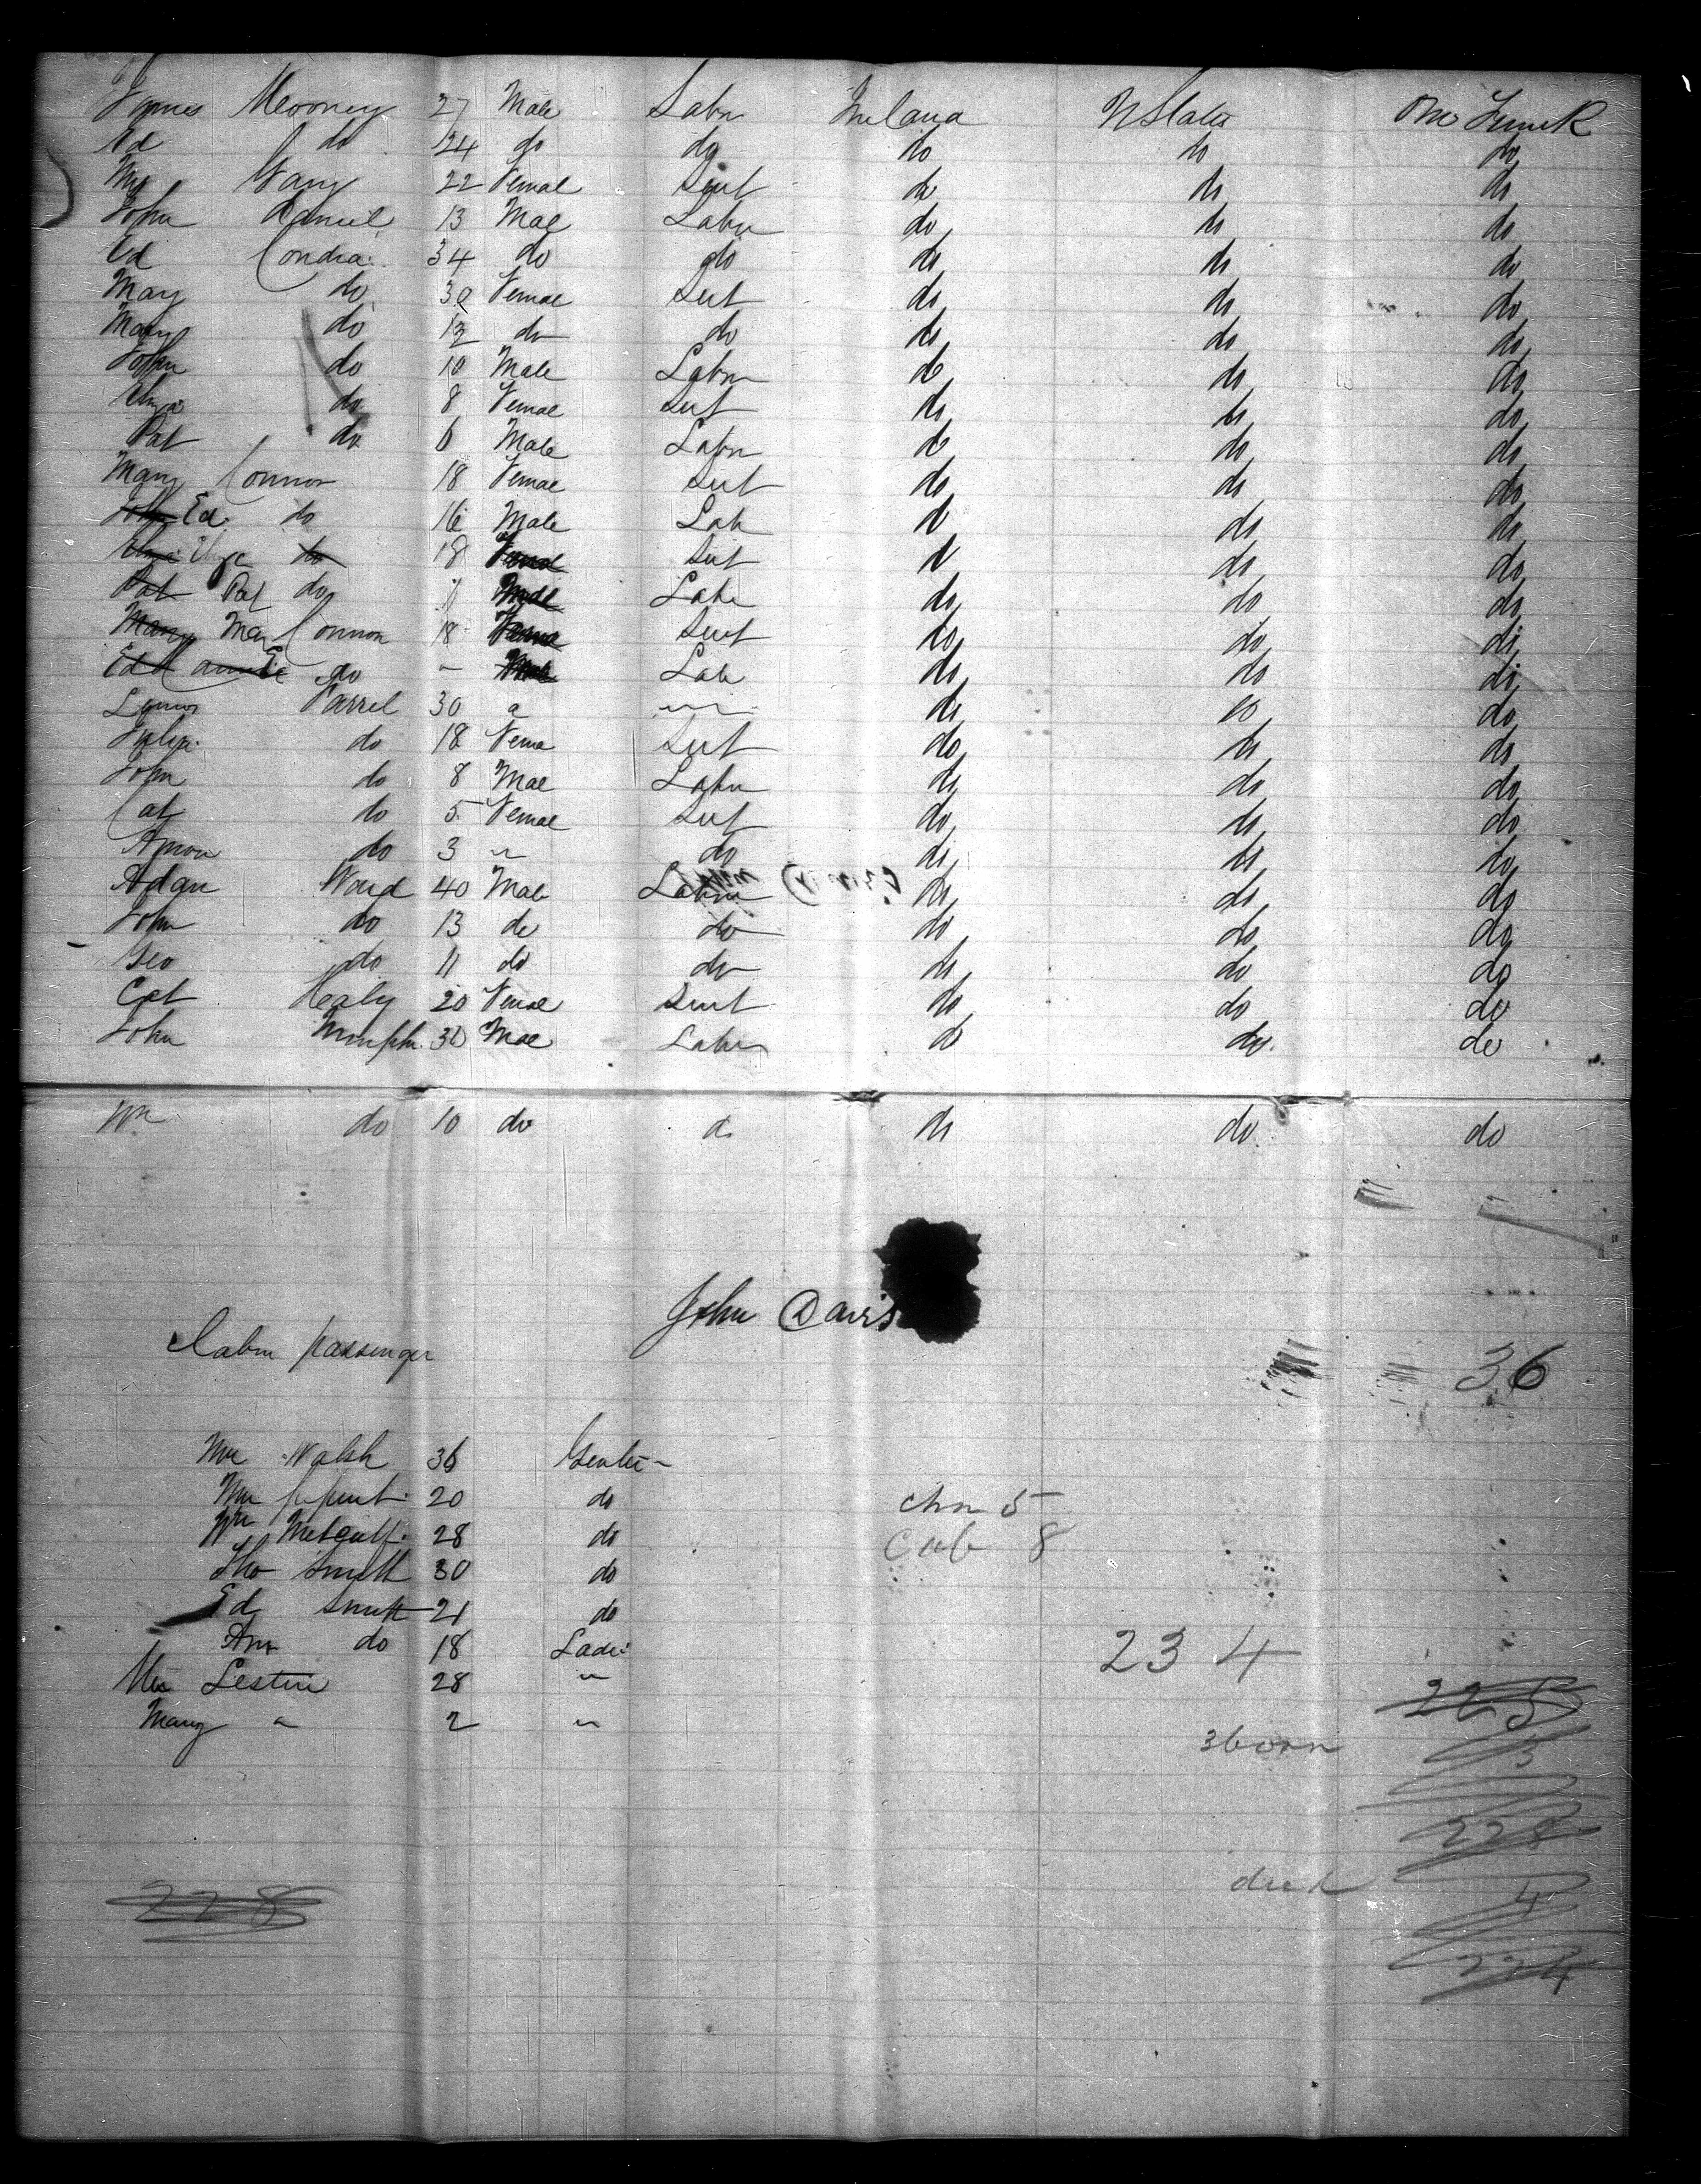 James Mooney 27 Male Labr Ireland U States One Trunk
Ed do 24 do do do do do
My 22 Femal Sert do do do
John Daniel 13 Mal Labr do do do
Ed Condra 34 do do do do do
Mary do 30 Femae Sert do do do
Mary do 12 do do do do do
John do 10 Male Labr do do do
Eliza do 8 Femae Sert do do do
Pat do 6 Male Labr do do do
Mary Connor 18 Femae Sert do do do
John Ed do 16 Male Lab do do do
Eliza Eliza do 18 Femal Sert do do do
Pat Pat do Male Labr do do do
Mary Mary Connor 18 Femae Sert do do do
Ed Connor Ed do " Male Lab do do do
Farrel 30 " " do do do
Julia do 18 Fema Sert do do do
John do 8 Mal Labr do do do
Cat do 5 Femal Sert do do do
do 3 " do do do do
Adam Ward 40 Male Labr do do do
John do 13 do do do do do
Geo do 11 do do do do do
Cat Healy 20 Femal Sert do do do
John Murphy 30 Mal Labr do do do
Wm do 10 do do do do do
John Davis
Cabin passenger
36
Mr Walsh 36 Gentle
Mr 20 do
chn 5
Wm Metcalf 28 do
cab 8
Tho Smith 30 do
Ed Smith 21 do
Ann do 18 Ladie
234
Mrs Lestire 28 "
225
Mary " 2 "
3 born
3
228
died
4
228
224